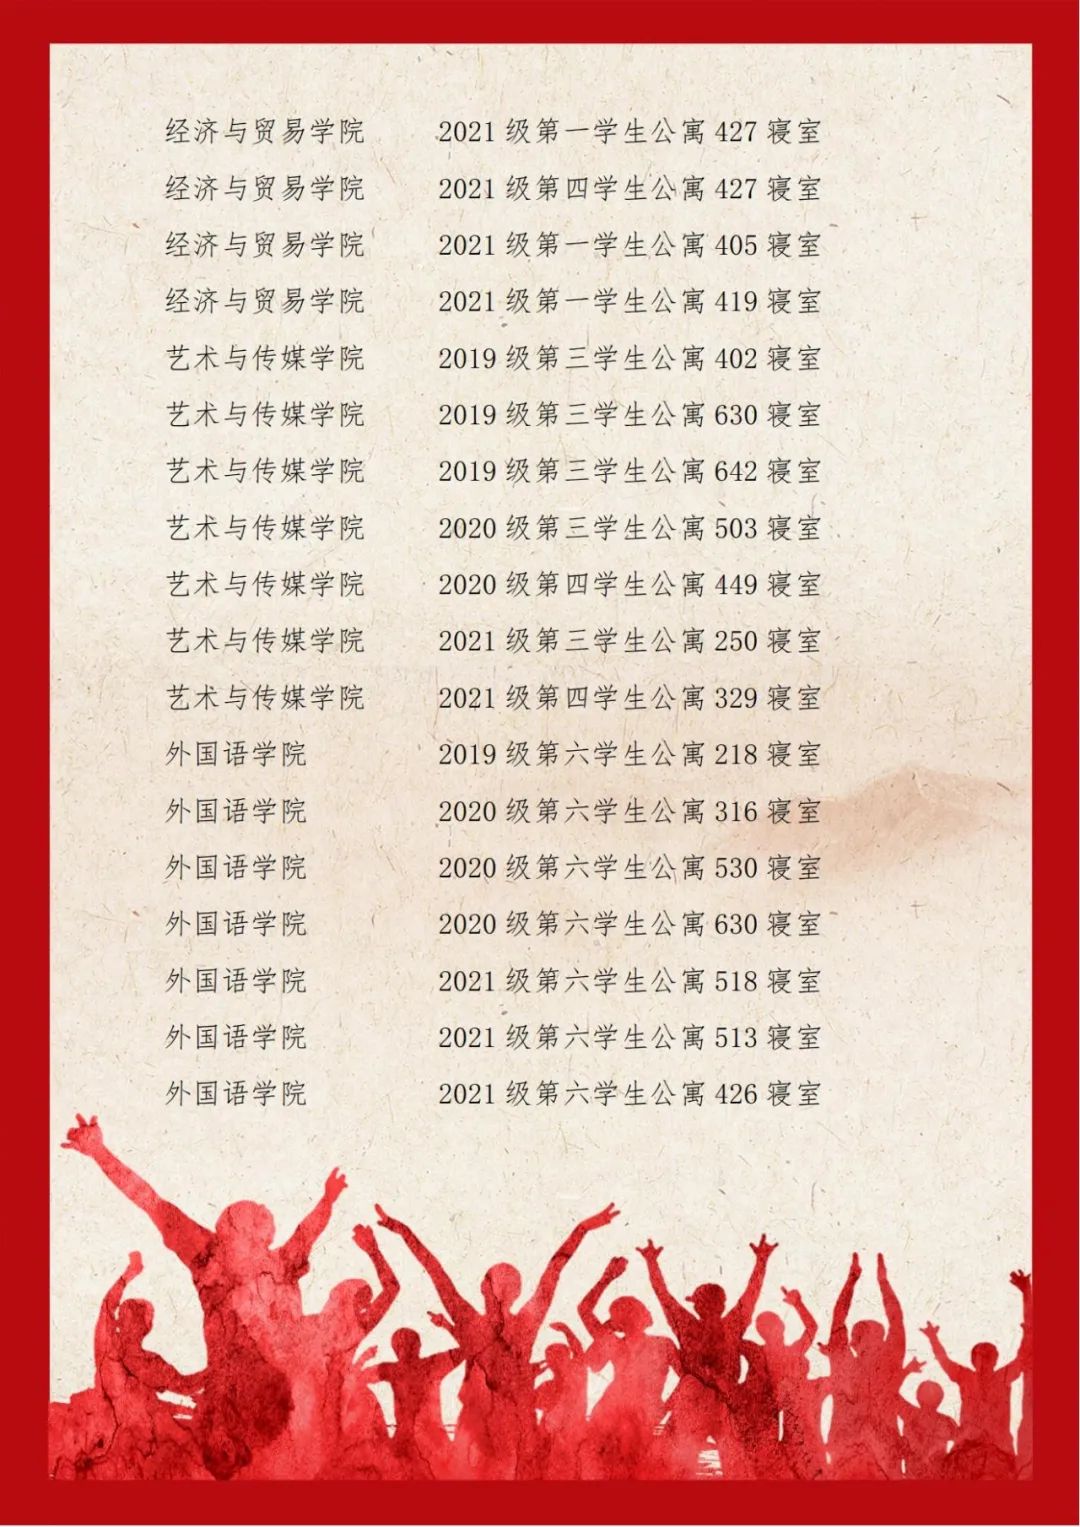 经济与贸易学院 2021级第一学生公寓427寝室
经济与贸易学院 2021级第四学生公寓427寝室
经济与贸易学院 2021级第一学生公寓405寝室
经济与贸易学院 2021级第一学生公寓419寝室
艺术与传媒学院 2019级第三学生公寓402寝室
艺术与传媒学院 2019级第三学生公寓630寝室
艺术与传媒学院 2019级第三学生公寓642寝室
艺术与传媒学院 2020级第三学生公寓503寝室
艺术与传媒学院 2020级第四学生公寓449寝室
艺术与传媒学院 2021级第三学生公寓250寝室
艺术与传媒学院 2021级第四学生公寓329寝室
外国语学院 2019级第六学生公寓218寝室
外国语学院 2020级第六学生公寓316寝室
外国语学院 2020级第六学生公寓530寝室
外国语学院 2020级第六学生公寓630寝室
外国语学院 2021级第六学生公寓518寝室
外国语学院 2021级第六学生公寓513寝室
外国语学院 2021级第六学生公寓426寝室